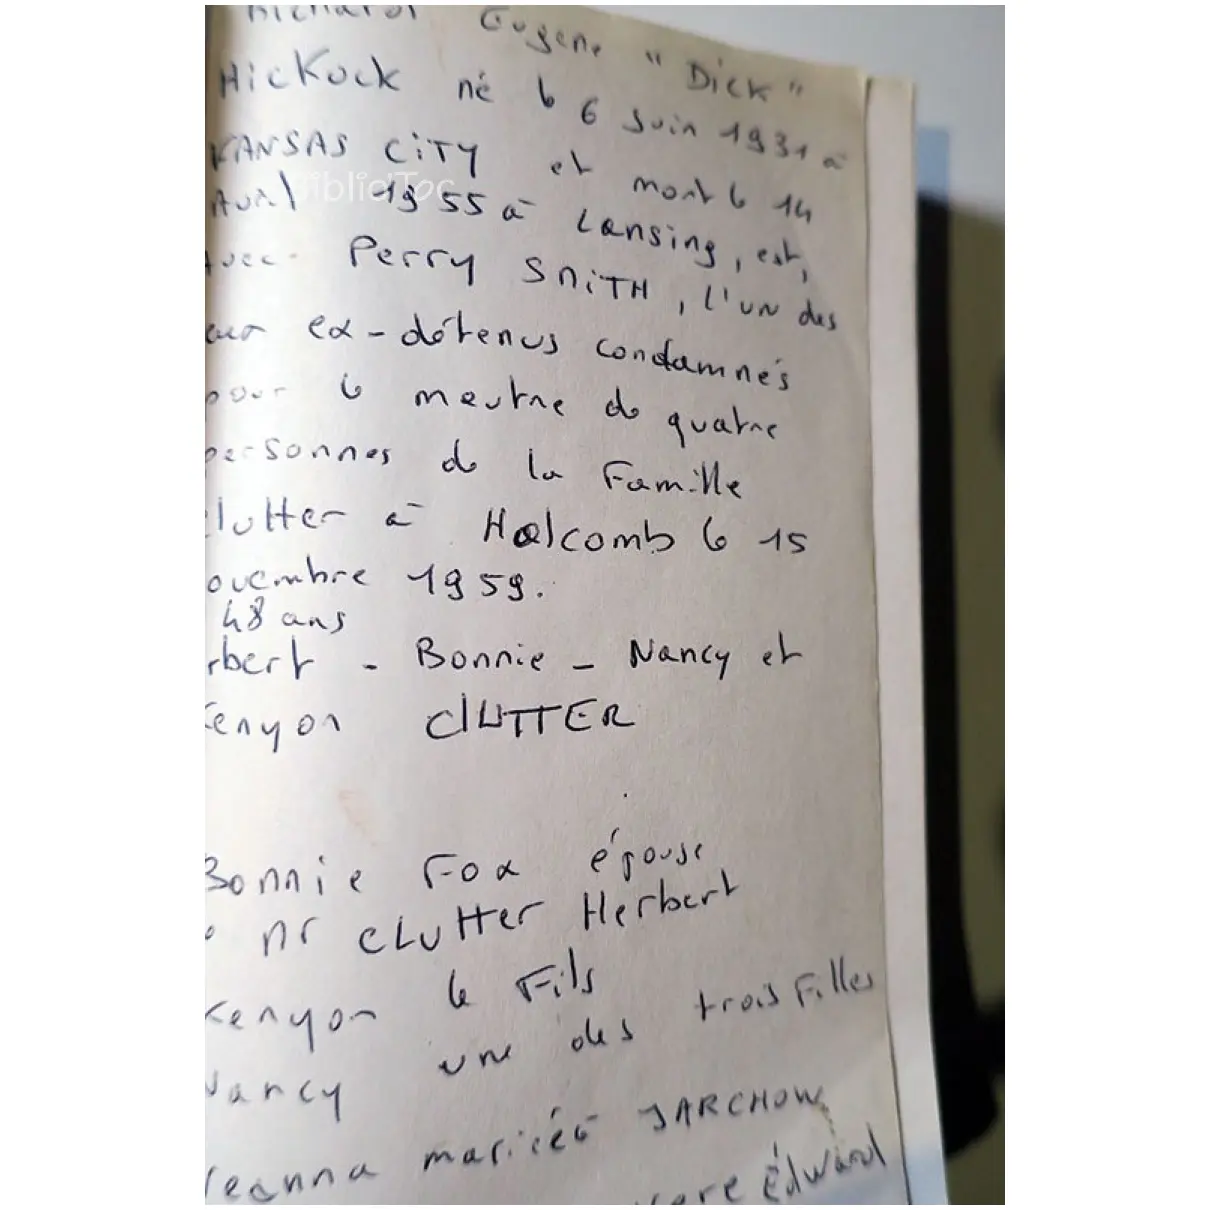 Richard Eugene "Dick"
Hickock né le 6 Juin 1931 à
KANSAS CITY et mort le 14
Avril 1955 à Lansing, est,
Avec Perry SMITH, l'un des
eux ex-détenus condamnés
pour le meurtre de quatre
personnes de la Famille
lutter à Holcomb le 15
ovembre 1959.
48 ans
rbert - Bonnie - Nancy et
Kenyon CLUTTER
Bonnie Fox épouse
Mr CLutter Herbert
Kenyon le Fils
Nancy une des trois Filles
eanna mariée JARCHOW
Edward
Biblio'Toc